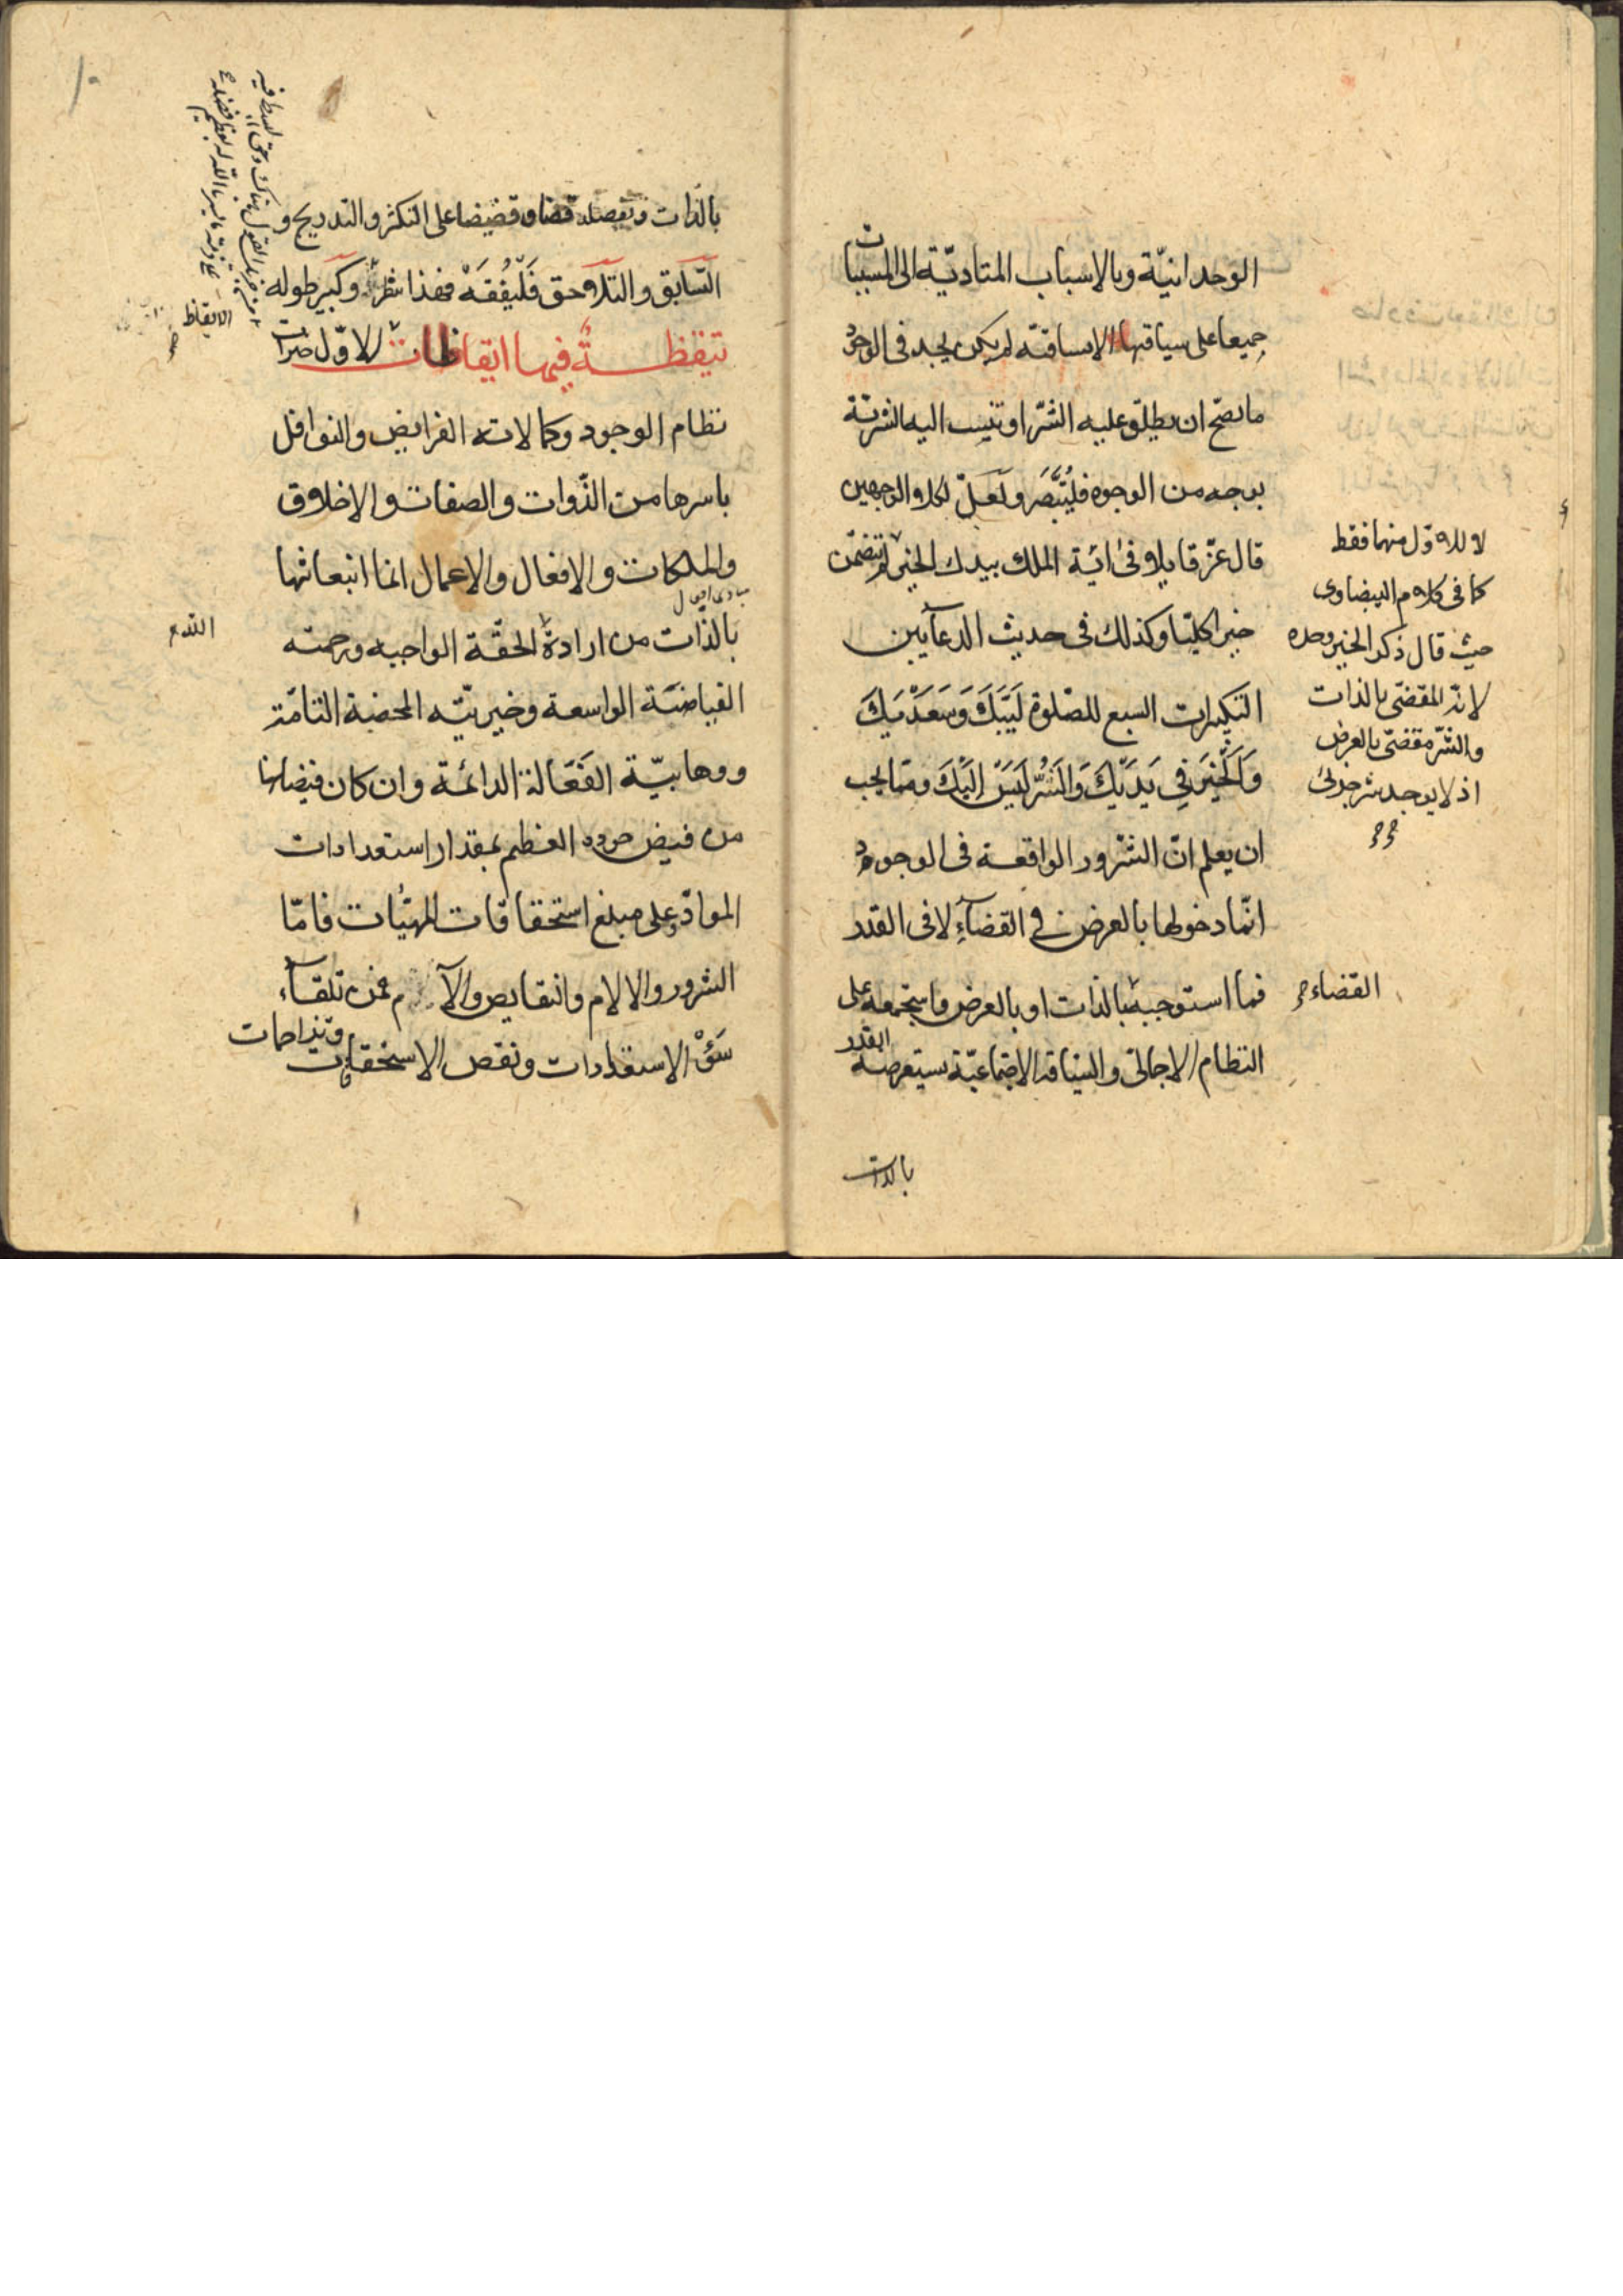 الوحدانيّة وبالاسباب المتاديّة الى المسببات
جميعا على سياقتها الاتساقيّة لم يكن يجد فى الوجود
ما يصحّ ان يطلق عليه الشرّ او تنسب اليه الشريّة
بوجه من الوجوه فليُتبصّر ولعلّ لكلا الوجهين
قال عزّ قايلا فى آية الملك بيدك الخير تضمّن
خيرا كليّا وكذلك فى حديث الدعآ بين
التكبيرات السبع للصّلوة لَبَّيْكَ وَسَعْدَيْكَ
وَالْخَيْرَ فِي يَدَيْكَ وَالشَّرُّ لَيْسَ اِلَيْكَ وممّا يجب
ان يعلم انّ الشرور الواقعة فى الوجود
انّما دخولها بالعرض فى القضآء لا فى القدر
فما استوجبه بالذات او بالعرض واستجمعه على
النظام الاجمالىّ والسياقة الاجتماعيّة سيتعرضه القدر
بالذات
لا للاوّل منهما فقط
كما فى كلام البيضاوى
حيث قال ذكر الخير وحده
لانّه المقضىّ بالذات
والشرّ مقضىّ بالعرض
اذ لا يوجد شر جزئى
القضاء
بالذات وتفصله قضا وقضيضا على التكثر والتدريج و
السّابق والتلاحق فَلْيُفْقَهْ فهذا شطر وكبير طوله
تيقظة فيها ايقاظات الاوّل
نظام الوجود وكمالاته الفرايض والنوافل
باسرها من الذّوات والصفات والاخلاق
والملكات والافعال والاعمال انما انبعاثها
بالذات من ارادة الحقّة الواجبه ورحمته
الفياضيّة الواسعة وخيريّته المحضة التامّة
ووهابيّة الفعّالة الدائمة وان كان فيضانها
من فيض جوده العظيم بمقدار استعدادات
الموادّ وعلى مبلغ استحقاقات المهيّات فامّا
الشرور والالام والنقايص فمن تلقآء
سَوْء الاستعدادات ونقص الاستحقاقات وتزاحمات
الايقاظ